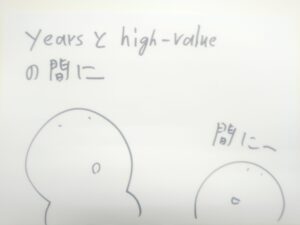 years と high-value
の間に
間に〜